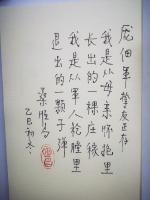 庞佃军友正存
我是从母亲怀抱里
长出的一棵庄稼
我是从军人枪膛里
退出的一颗子弹
桑恒昌
乙巳初冬